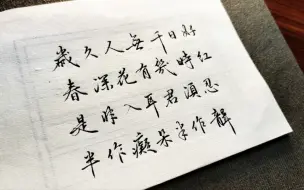 歲久人無千日好
春深花有幾時紅
是非入耳君須忍
半作癡呆半作聾